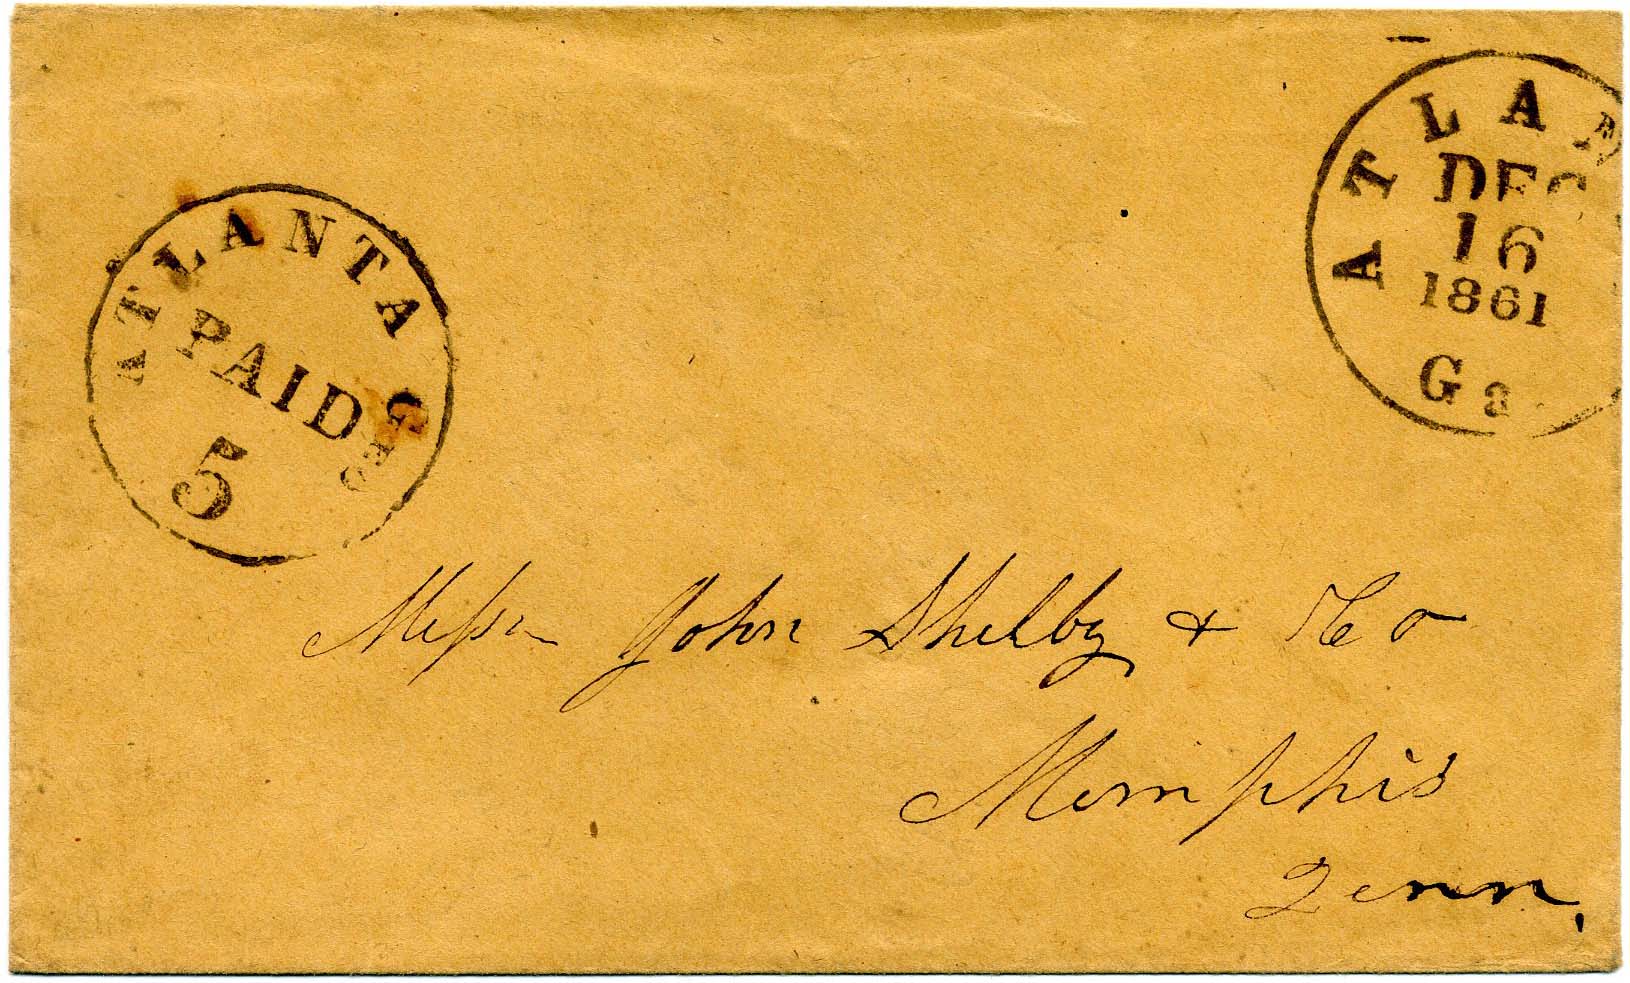 ATLANTA GEO
PAID
5
ATLAN
DEC
16
1861
Ga
Messrs John Shelby & Co
Memphis
Tenn,